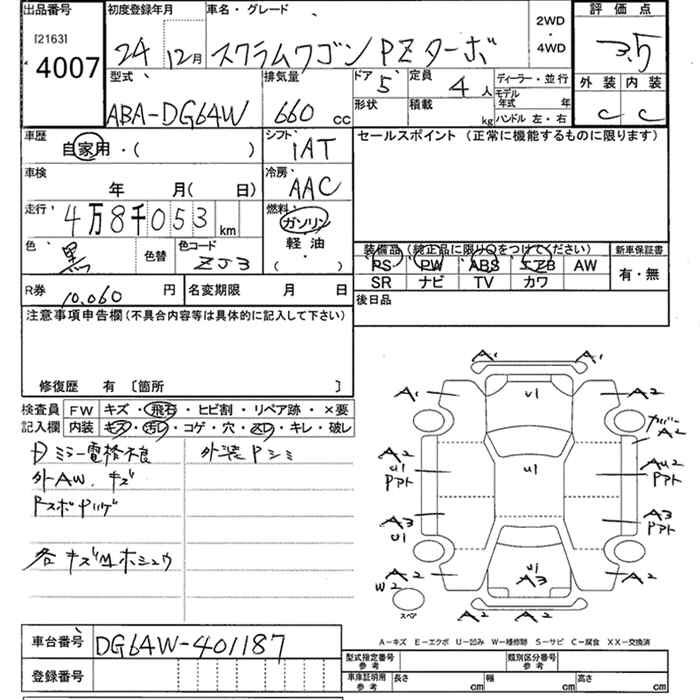 出品番号 初度登録年月 車名・グレード 2WD・4WD 評価点
[2163]
4007
24 12月 スクラムワゴン PZターボ 3.5
型式 排気量 ドア 5 定員 4人 ディーラー・並行 外装 内装
ABA-DG64W 660 cc 形状 積載 kg モデル年式 年 C C
ハンドル 左・右
車歴 自家用・( ) シフト 1AT セールスポイント (正常に機能するものに限ります)
車検 年 月( 日) 冷房 AAC
走行 4万8千053 km 燃料 ガソリン
軽油
( )
色 黒 色替 色コード ZJ3
装備品 (純正品に限り○をつけてください) 新車保証書
PS PW ABS エアB AW 有・無
SR ナビ TV カワ
R券 10,060 円 名変期限 月 日 後日品
注意事項申告欄(不具合内容等は具体的に記入して下さい)
修復歴 有 〔箇所 〕
検査員 FW キズ・飛石・ヒビ割・リペア跡・×要
記入欄 内装 キズ・汚レ・コゲ・穴・スレ・キレ・破レ
Dミラー電格不良 外装Pシミ
外AW.キズ
各キズ凹ホシュウ
A1 A1
U1
A1 A2
カバーA2
A2 U1 Pアト U1 AU2 Pアト
A3 U1 A3 Pアト
U1 A3
A2 W2 A2
スペア
A2 A2
A-キズ E-エクボ U-凹み W-補修跡 S-サビ C-腐食 XX-交換済
車台番号 DG64W-401187
型式指定番号 参考 類別区分番号 参考
登録番号 車庫証明用 参考 長さ cm 幅 cm 高さ cm